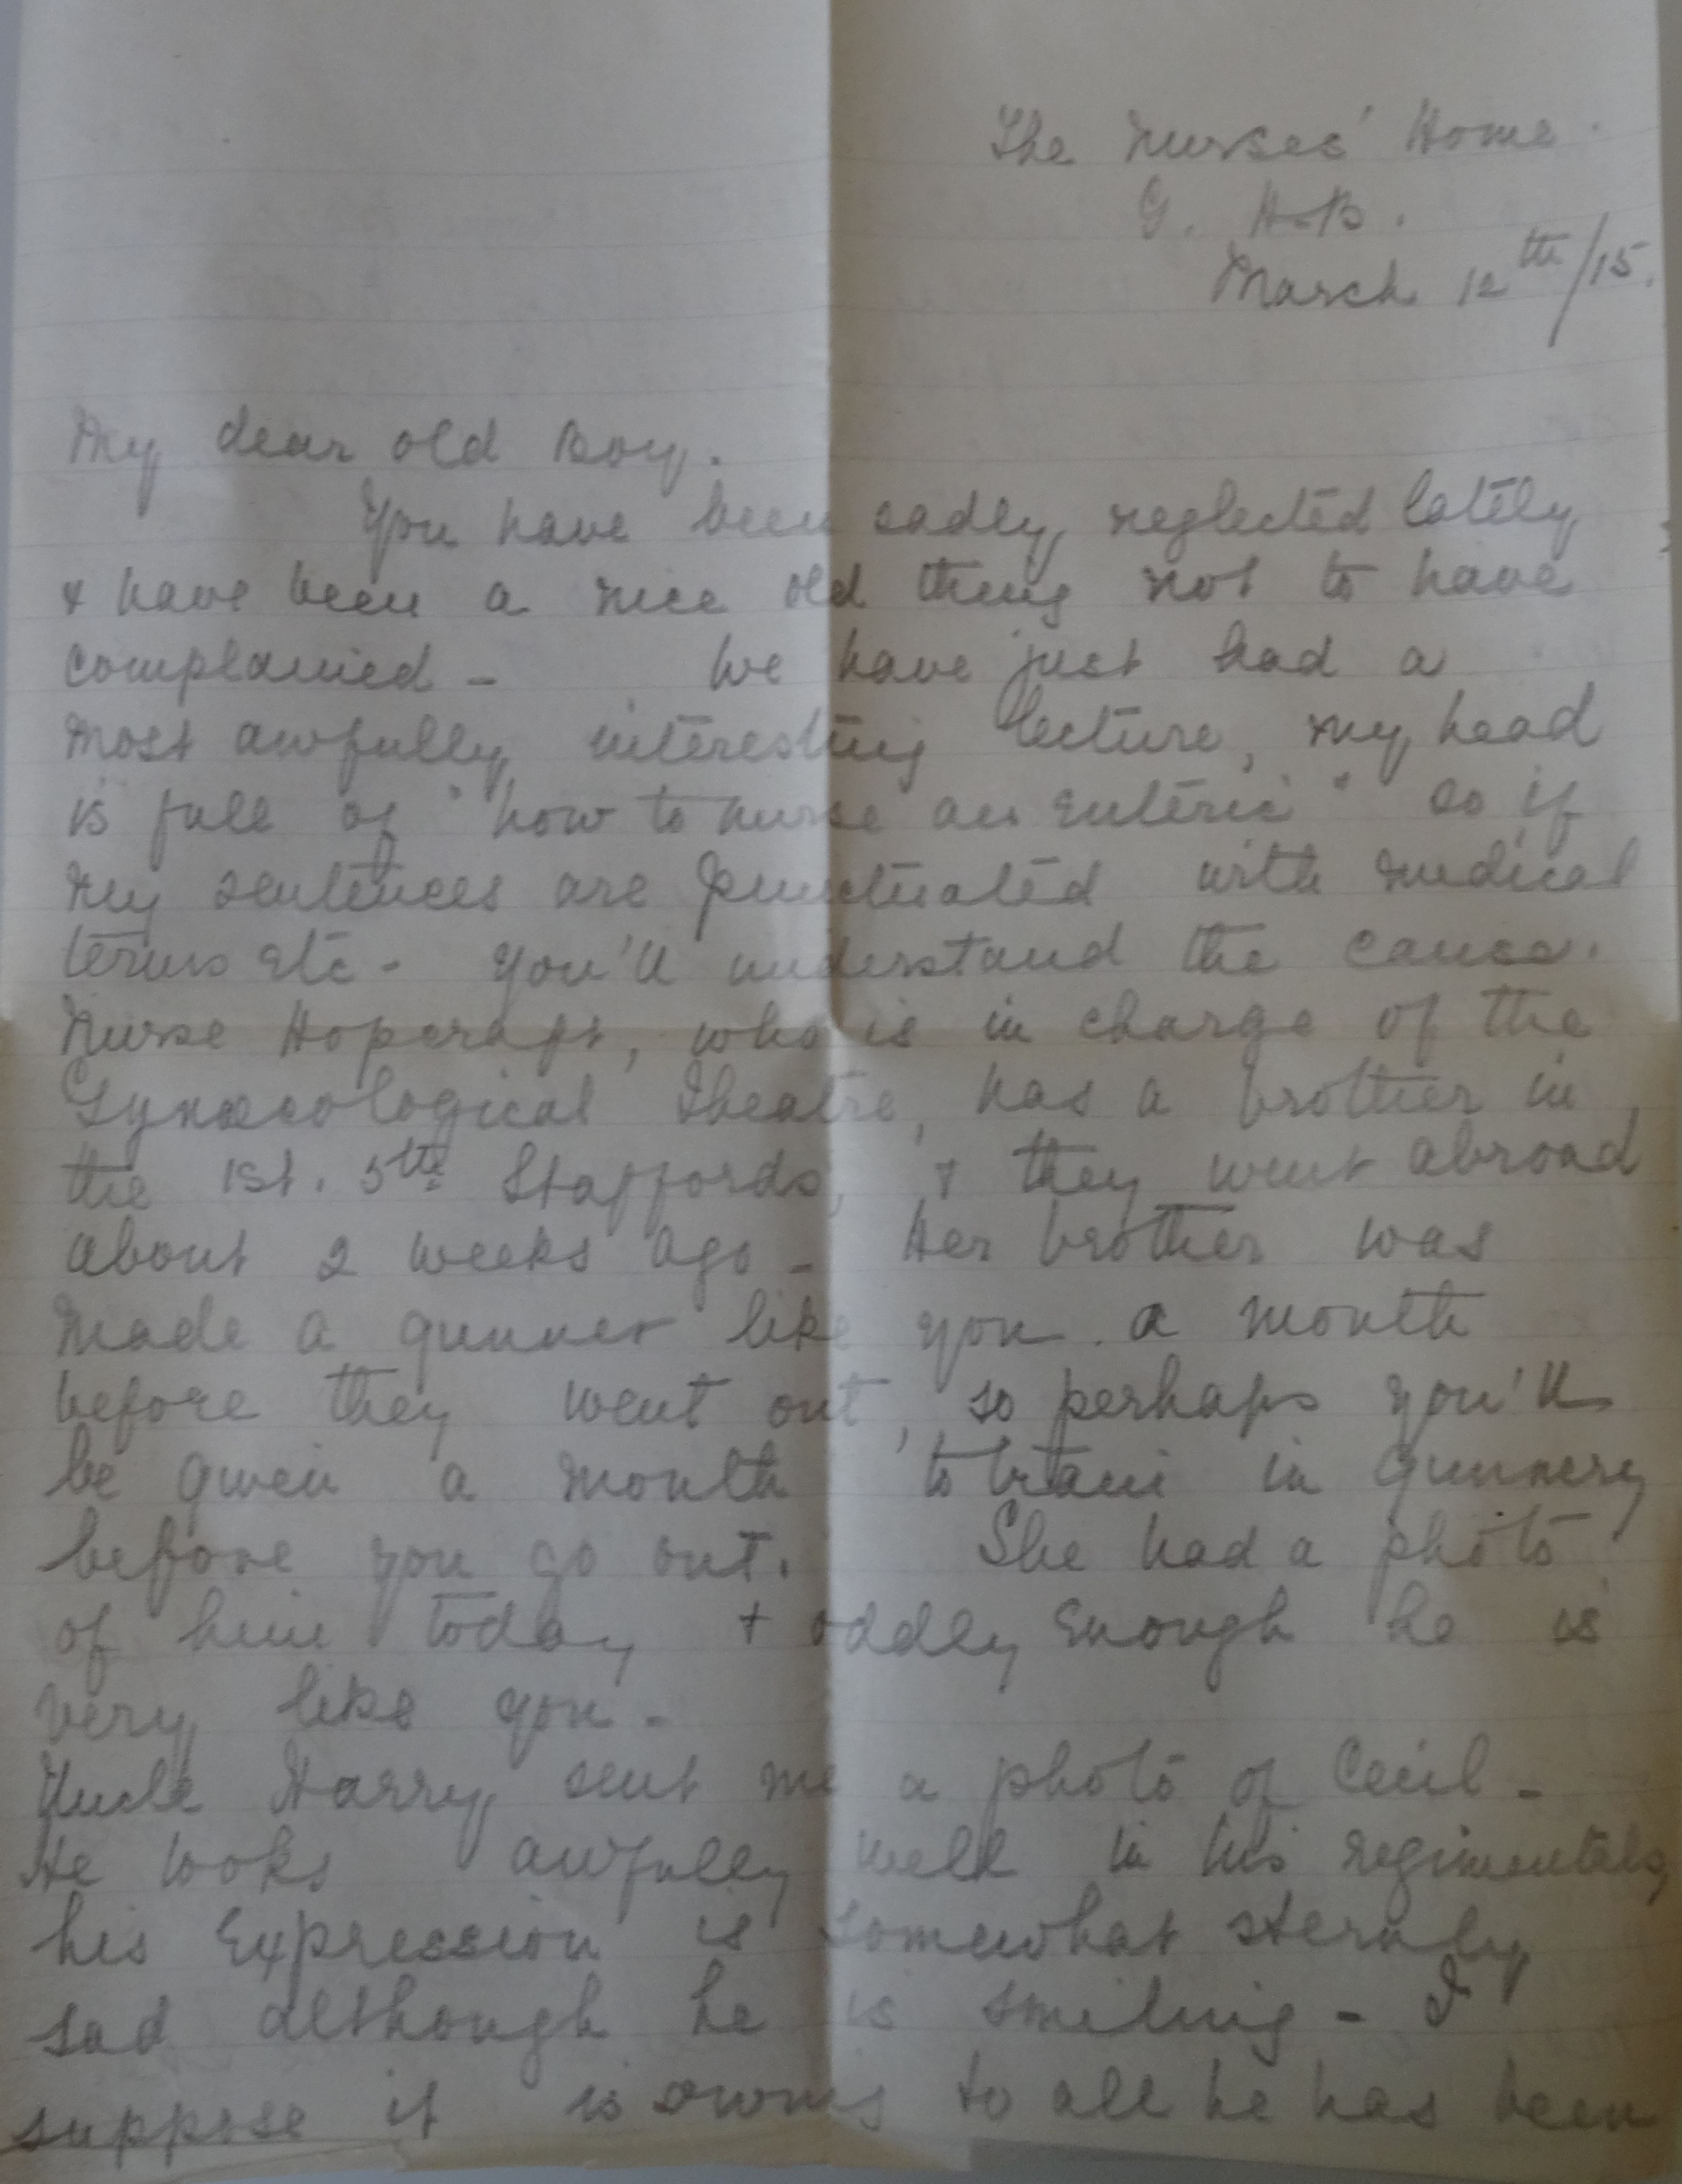 The Nurses' Home.
G. H.B.
March 12th/15.
My dear old Boy.
You have been sadly neglected lately
& have been a nice old thing not to have
complained - We have just had a
most awfully interesting lecture, my head
is full of "how to nurse an Enteric" so if
my sentences are punctuated with medical
terms etc - you'll understand the cause.
Nurse Hopcraft, who is in charge of the
Gynaecological Theatre, has a brother in
the 1st. 5th Staffords, & they went abroad
about 2 weeks ago - Her brother was
made a gunner like you. a month
before they went out, so perhaps you'll
be given a month to train in gunnery
before you go out. She had a photo
of him today & oddly Enough he is
very like you -
Uncle Harry sent me a photo of Cecil -
He looks awfully well in his regimentals,
his Expression is somewhat sternly
sad although he is smiling - I
suppose it is owing to all he has been